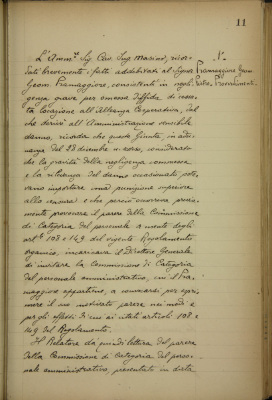 11
L'Amm.re Sig. Cav. Ing. Marino, rias-
sunti brevemente i fatti addebitati al Signor
Geom. Framaggiore, consistenti in negli-
genza grave per omessa diffida di cessa-
ta locazione all'Alleanza Cooperativa, dal
che derivò all'Amministrazione sensibile
danno, ricorda che questa Giunta, in adu-
nanza del 28 dicembre u. scorso, considerato
che la gravità della negligenza commessa
e la rilevanza del danno cagionato, pote-
vano importare una punizione superiore
alla censura e che perciò occorreva previa-
mente provocare il parere della Commissione
di Categoria del personale a mente degli
art.li 108 e 149 del vigente Regolamento
organico, incaricava il Direttore Generale
di invitare la Commissione di Categoria
del personale amministrativo, cui il Fra-
maggiore appartiene, a convocarsi per espri-
mere il suo motivato parere nei modi e
per gli effetti di cui ai citati articoli 108 e
149 del Regolamento.
Il Relatore dà quindi lettura del parere
della Commissione di Categoria del perso-
nale amministrativo, presentato in data
Framaggiore Geom.
Provvedimenti